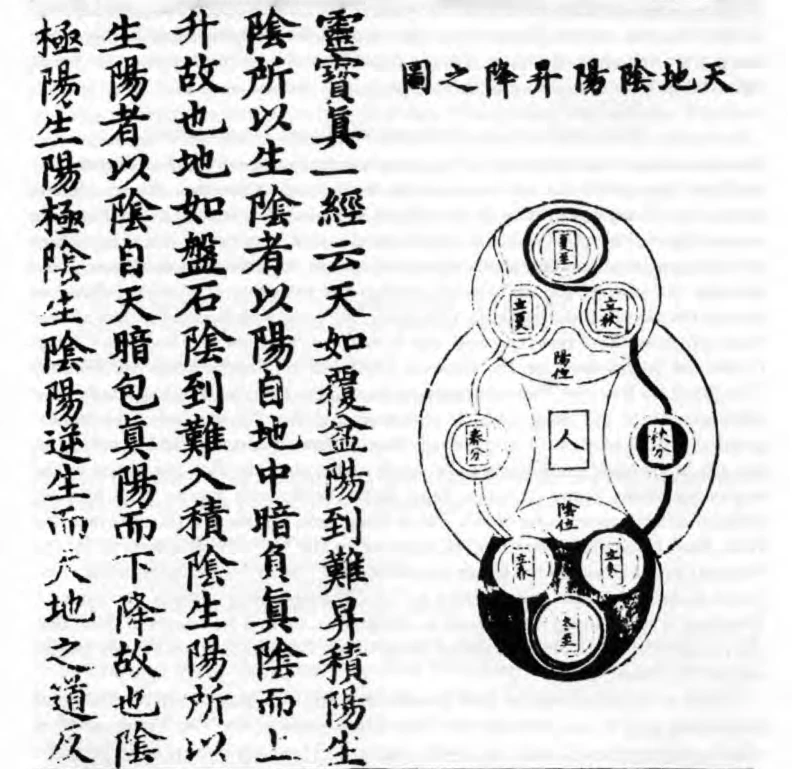 天地陰陽昇降之圖
夏至
立秋
立夏
陽位
人
秋分
春分
陰位
立冬
立春
冬至
靈寶眞一經云天如覆盆陽到難昇積陽生
陰所以生陰者以陽自地中暗負眞陰而上
升故也地如盤石陰到難入積陰生陽所以
生陽者以陰自天暗包眞陽而下降故也陰
極陽生陽極陰生陰陽逆生而天地之道反